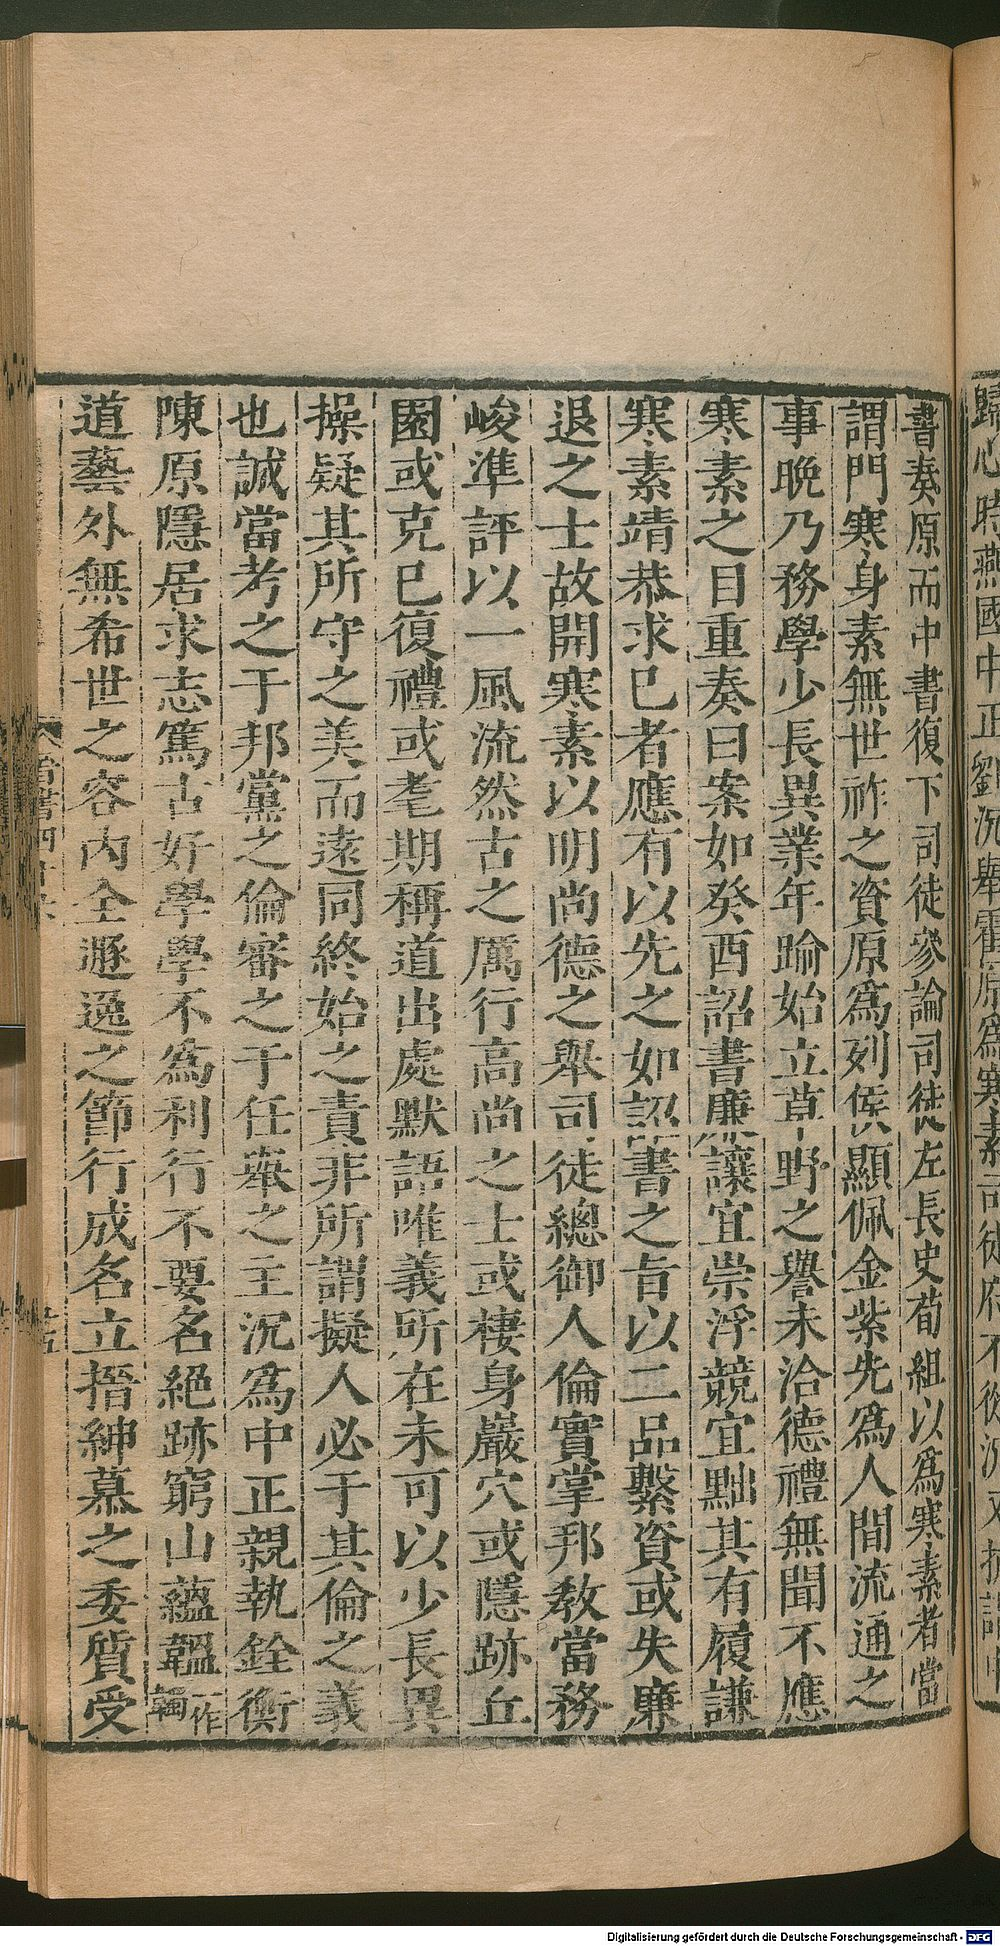 歸心時燕國中正劉沉舉霍原爲寒素司徒府不從沉又抗詣中
書奏原而中書復下司徒參論司徒左長史荀組以爲寒素者當
謂門寒身素無世祚之資原爲列侯顯佩金紫先爲人間流通之
事晚乃務學少長異業年踰始立草野之譽未洽德禮無聞不應
寒素之目重奏曰案如癸酉詔書廉讓宜崇浮競宜黜其有履謙
寒素靖恭求已者應有以先之如詔書之旨以二品繫資或失廉
退之士故開寒素以明尚德之舉司徒總御人倫實掌邦教當務
峻準評以一風流然古之厲行高尚之士或棲身巖穴或隱跡丘
園或克已復禮或耄期稱道出處默語唯義所在未可以少長異
操疑其所守之美而遠同終始之責非所謂擬人必于其倫之義
也誠當考之于邦黨之倫審之于任舉之主沉爲中正親執銓衡
陳原隱居求志篤古好學學不爲利行不要名絕跡窮山蘊韞一作韣
道藝外無希世之容內全遯逸之節行成名立搢紳慕之委質受
Digitalisierung gefördert durch die Deutsche Forschungsgemeinschaft - DFG